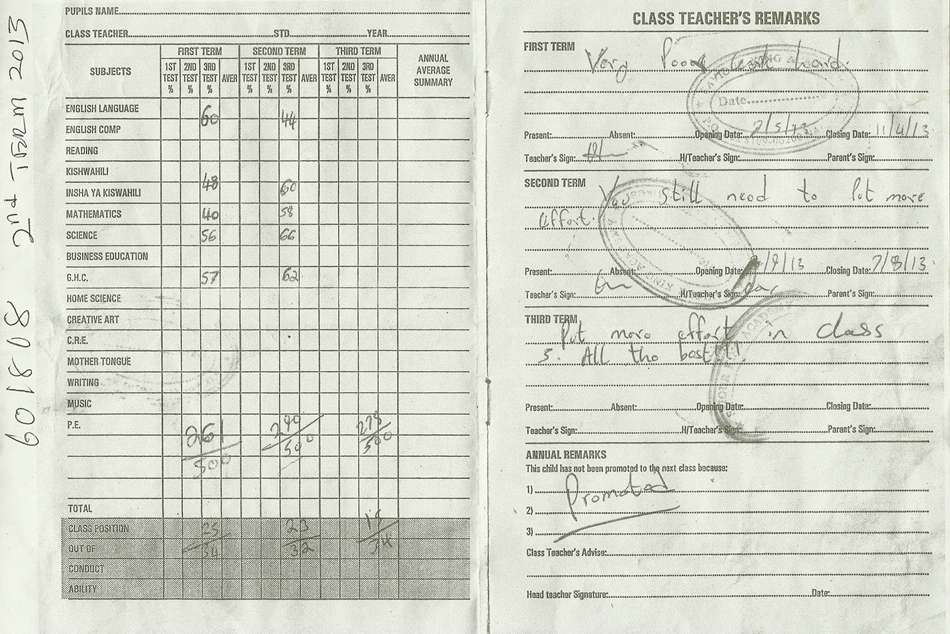 60/808 2nd TERM 2013
PUPILS NAME
CLASS TEACHER STD YEAR
SUBJECTS
FIRST TERM SECOND TERM THIRD TERM
1ST TEST % 2ND TEST % 3RD TEST % AVER 1ST TEST % 2ND TEST % 3RD TEST % AVER 1ST TEST % 2ND TEST % 3RD TEST % AVER
ANNUAL AVERAGE SUMMARY
ENGLISH LANGUAGE 60 44
ENGLISH COMP
READING
KISHWAHILI 48
INSHA YA KISWAHILI 60
MATHEMATICS 40 58
SCIENCE 56 66
BUSINESS EDUCATION
G.H.C. 57 62
HOME SCIENCE
CREATIVE ART
C.R.E.
MOTHER TONGUE
WRITING
MUSIC
P.E. 261 290 278
500 500 500
TOTAL
CLASS POSITION 25 23
OUT OF 34 32 34
CONDUCT
ABILITY
CLASS TEACHER'S REMARKS
FIRST TERM
Very Poor work hard.
Date
Present: Absent: Opening Date: 2/5/13 Closing Date: 11/4/13
Teacher's Sign: H/Teacher's Sign: Parent's Sign:
SECOND TERM
You still need to Put more
effort.
Present: Absent: Opening Date: /9/13 Closing Date: 7/8/13
Teacher's Sign: H/Teacher's Sign: Parent's Sign:
THIRD TERM
Put more effort in class
5. All the best!!
Present: Absent: Opening Date: Closing Date:
Teacher's Sign: H/Teacher's Sign: Parent's Sign:
ANNUAL REMARKS
This child has not been promoted to the next class because:
1)
Promoted
2)
3)
Class Teacher's Advise:
Head teacher Signature: Date: